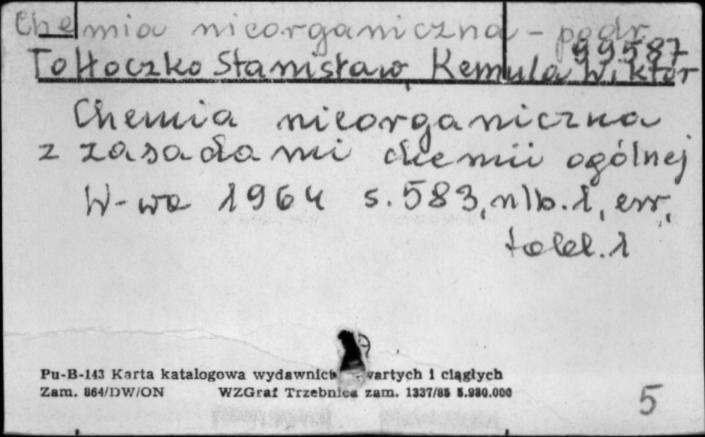 Chemia nieorganiczna - podr.
99587
Tołłoczko Stanisław, Kemula Wiktor
Chemia nieorganiczna
z zasadami chemii ogólnej
W-wa 1964 s. 583, nlb. 1, err,
tabl. 1
Pu-B-143 Karta katalogowa wydawnictw zwartych i ciągłych
Zam. 864/DW/ON WZGraf Trzebnica zam. 1337/85 5.980.000
5